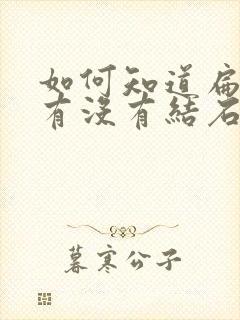 如何知道扁
有没有結石
暮寒公子